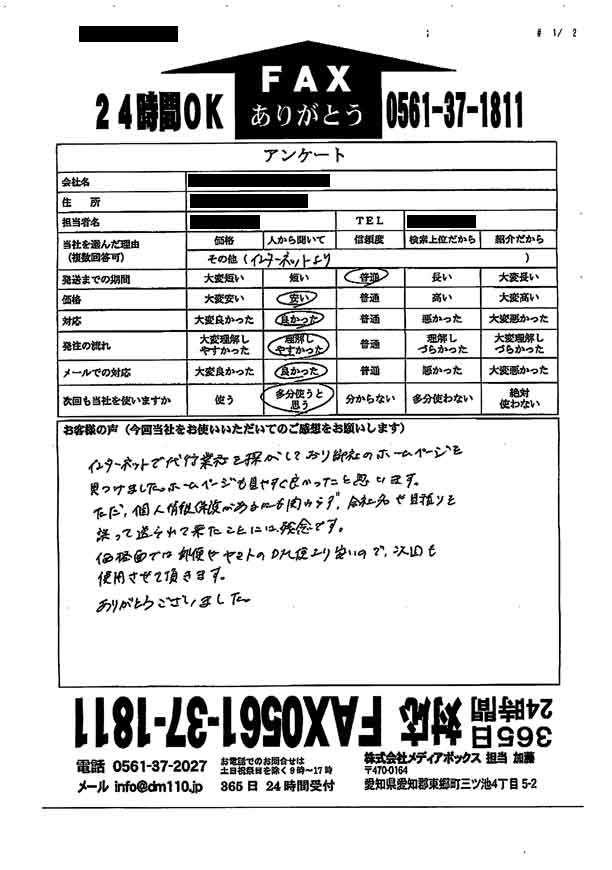 # 1/ 2
FAX
24時間OK ありがとう 0561-37-1811
アンケート
会社名
住 所
担当者名 TEL
当社を選んだ理由 (複数回答可) 価格 人から聞いて 信頼度 検索上位だから 紹介だから
その他 (インターネットより )
発送までの期間 大変短い 短い 普通 長い 大変長い
価格 大変安い 安い 普通 高い 大変高い
対応 大変良かった 良かった 普通 悪かった 大変悪かった
発注の流れ 大変理解しやすかった 理解しやすかった 普通 理解しづらかった 大変理解しづらかった
メールでの対応 大変良かった 良かった 普通 悪かった 大変悪かった
次回も当社を使いますか 使う 多分使うと思う 分からない 多分使わない 絶対使わない
お客様の声(今回当社をお使いいただいてのご感想をお願いします)
インターネットで代行業社を探がしており御社のホームページを
見つけました。ホームページも見やすく良かったと思います。
ただ、個人情報保護があるにも関わらず、会社名や見積りを
誤って送られて来たことには残念です。
価格面では郵便やヤマトのDM便より安いので、次回も
使用させて頂きます。
ありがとうございました。
365日 24時間 対応 FAX0561-37-1811
電話 0561-37-2027
メール info@dm110.jp
お電話でのお問合せは
土日祝祭日を除く9時~17時
365日 24時間受付
株式会社メディアボックス 担当 加藤
〒470-0164
愛知県愛知郡東郷町三ツ池4丁目5-2